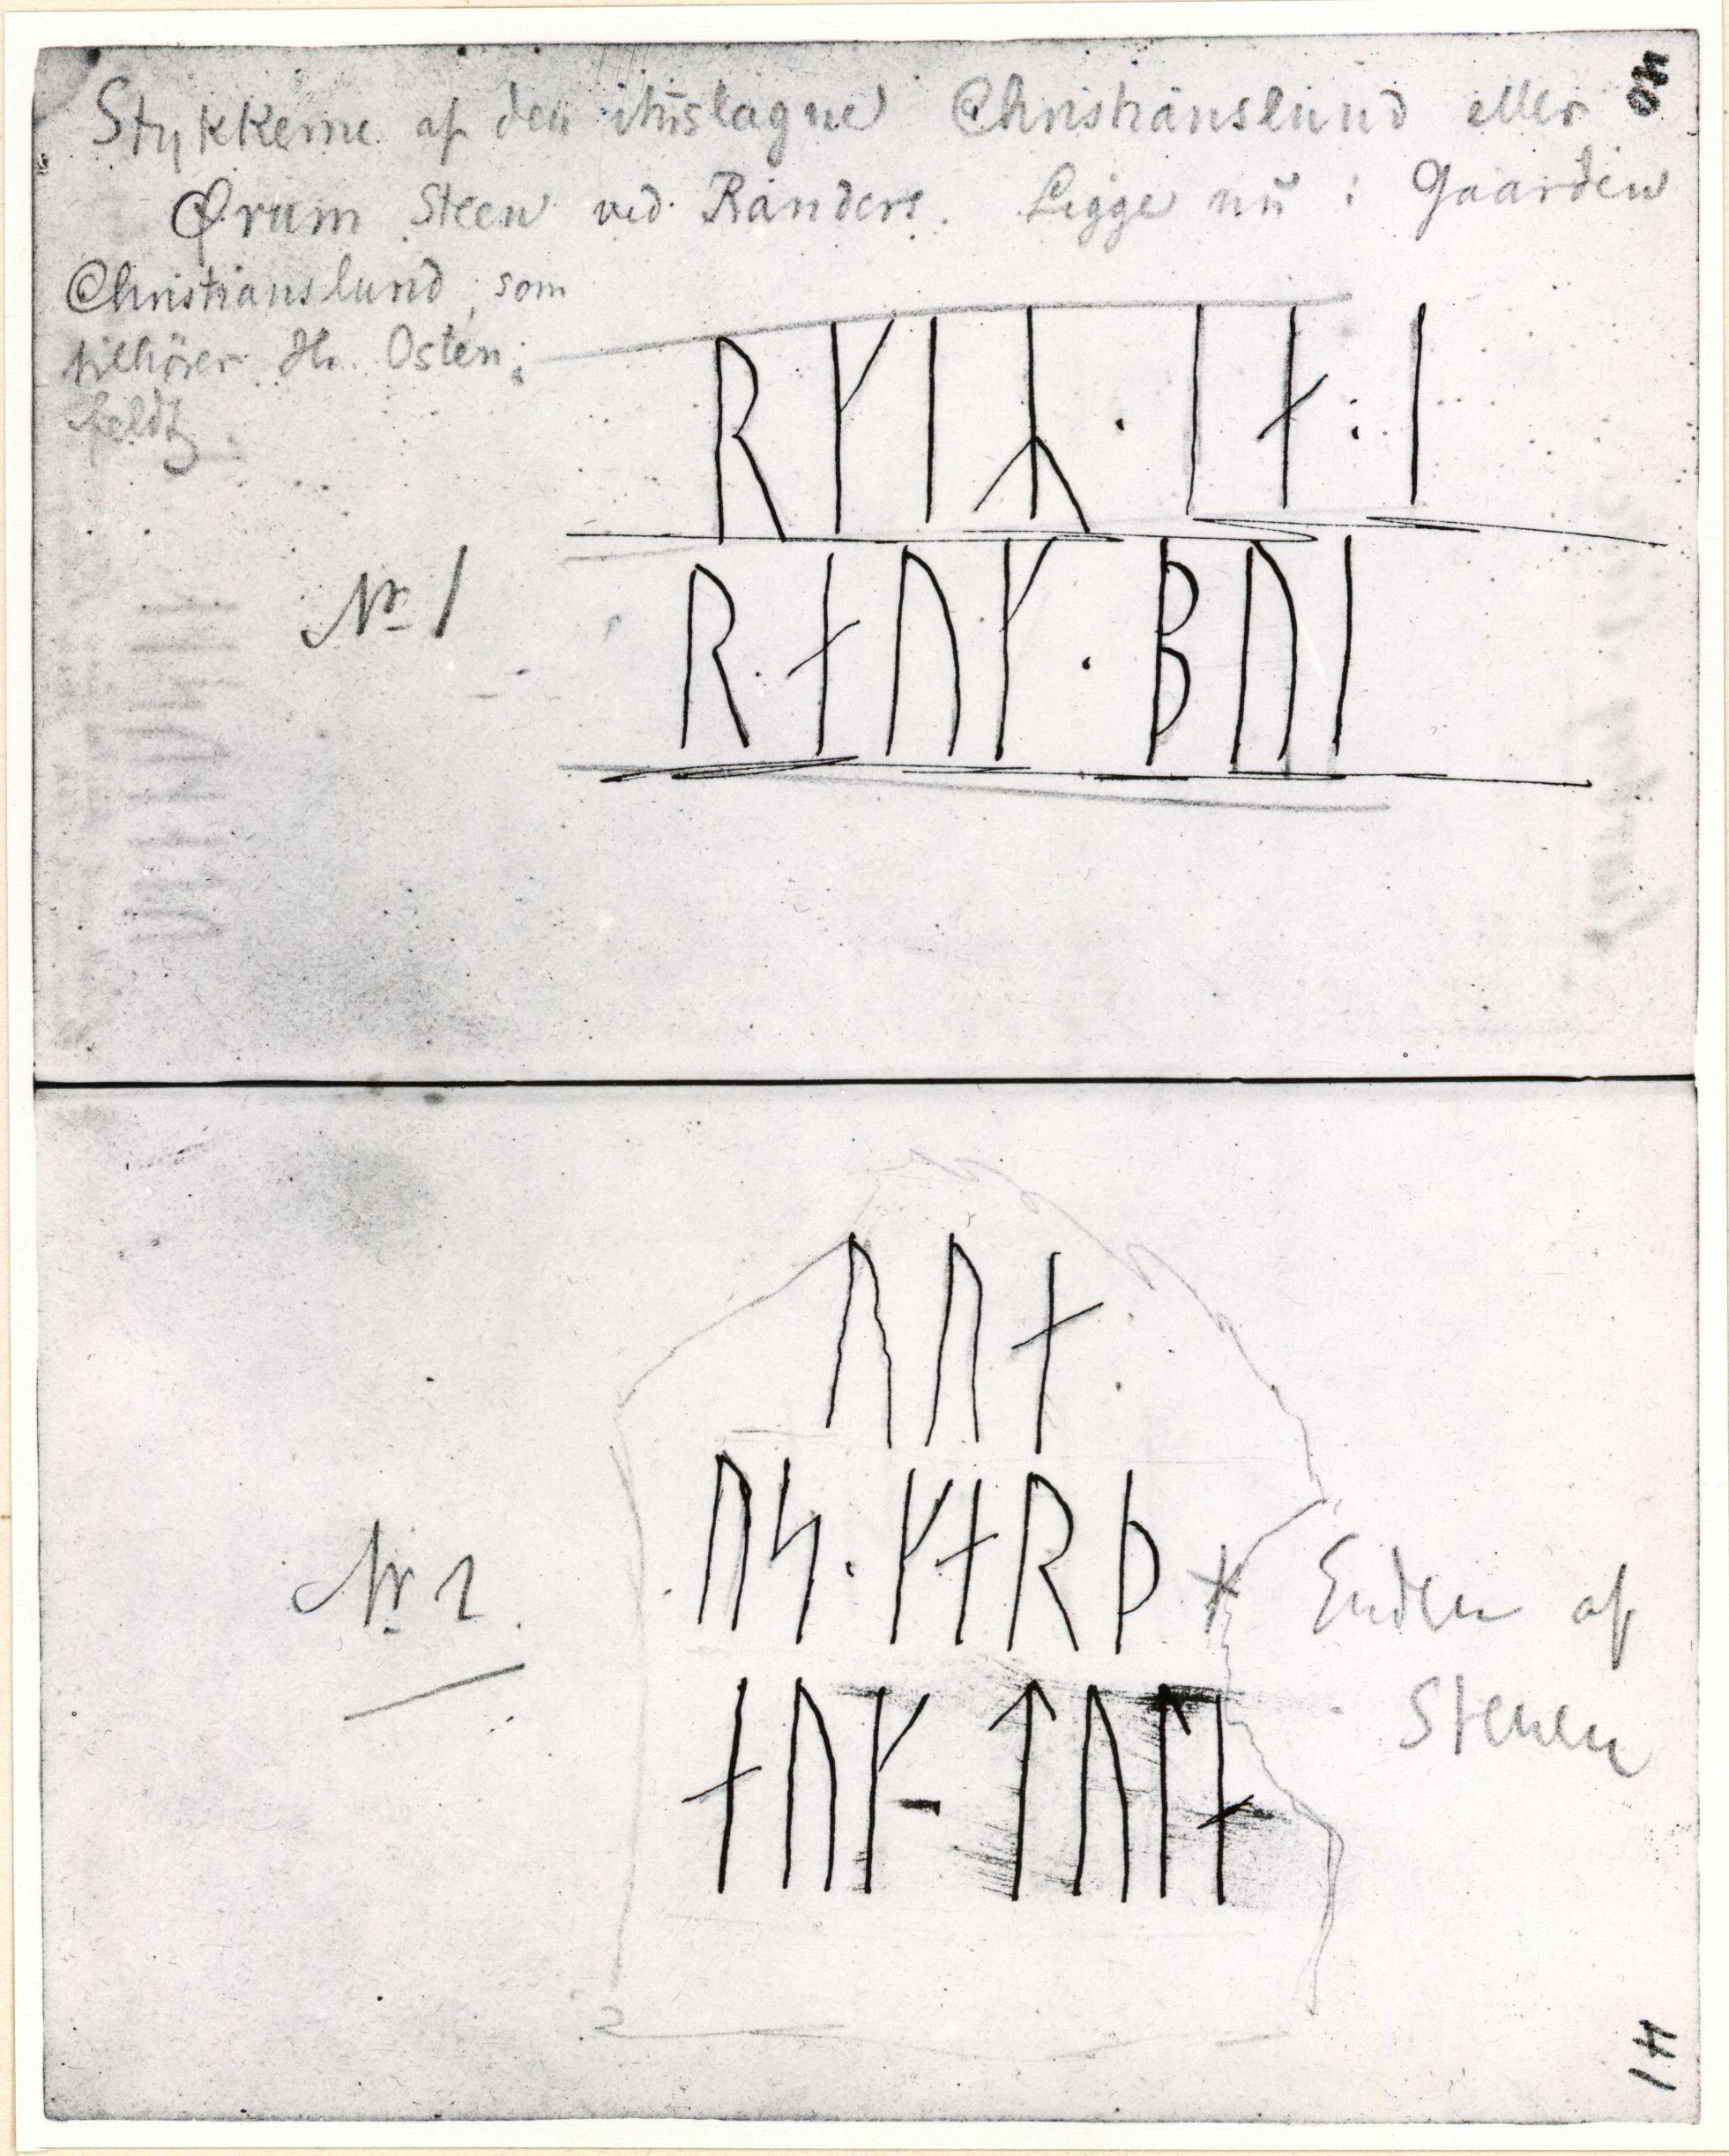 40
Stykkerne af den ituslagne Christianslund eller
Ørum Steen ved Randers. Ligge nu i Gaarden
Christianslund, som
tilhörer Hr. Osten-
feldt.
ᚱᚴᛁᛦ · ᛁᚾ : ᛁ
Nr 1
ᚱ · ᛅᚢᚴ · ᛒᚢᛁ
ᚢᚢᛅ ·
· ᚢᛋ · ᚴᛅᚱᚦ ᚼ
Nr 2.
Enden af
Stenen
ᛅᚢᚴ - ᛏᚢᛚᛅ
41